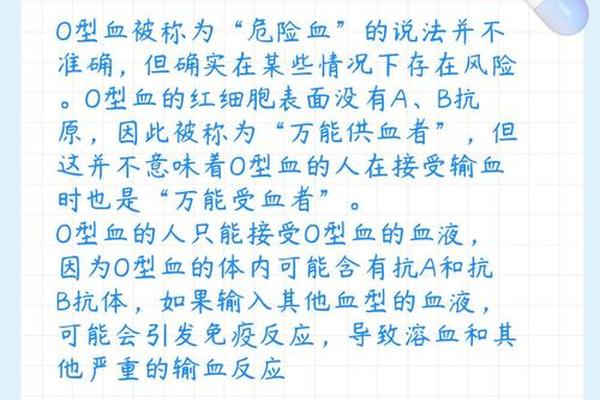 O型血被称为“危险血”的说法并不
准确，但确实在某些情况下存在风险
。O型血的红细胞表面没有A、B抗
原，因此被称为“万能供血者”，但
这并不意味着O型血的人在接受输血
时也是“万能受血者”。
O型血的人只能接受O型血的血液，
因为O型血的体内可能含有抗A和抗
B抗体，如果输入其他血型的血液，
可能会引发免疫反应，导致溶血和其
他严重的输血反应